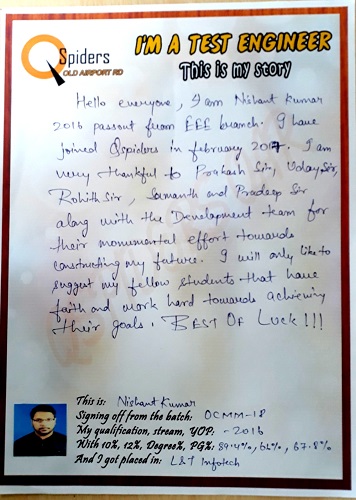 QSpiders
OLD AIRPORT RD
I'M A TEST ENGINEER
This is my story
Hello everyone, I am Nishant Kumar
2016 passout from EEE branch. I have
joined Qspiders in february 2017. I am
very thankful to Prakash Sir, Uday Sir,
Rohith Sir, Sumanth and Pradeep Sir
along with the Development team for
their monumental effort towards
constructing my future. I will only like to
suggest my fellow students that have
faith and work hard towards achieving
their goals. BEST OF LUCK!!!
This is: Nishant Kumar
Signing off from the batch: OCMM-18
My qualification, stream, YOP: -2016
With 10%, 12%, Degree%, PG%: 89.4%, 62%, 67.8%
And I got placed in: L&T Infotech